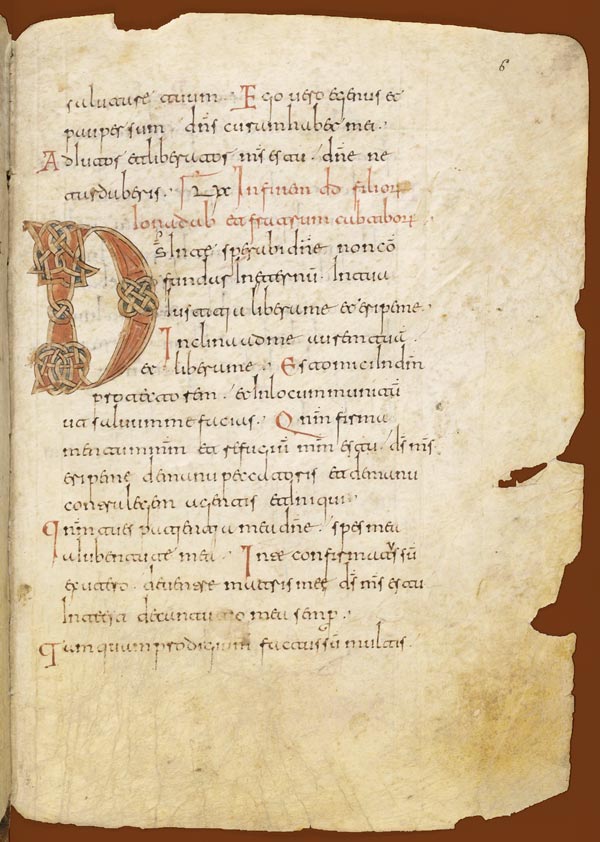 6
salutare tuum · Ego uero egenus et
pauper sum · dn̄s curam habet mei ·
Adiutor et liberator m̄s es tu · dn̄e ne
tardaberis. Lxx In finem dd filior
Ionadab et fratrum cabtibor
Ds̄ In te sperabi dn̄e non cō
fundar In eternū · In tua
Iustitia libera me et eripe me ·
Inclina ad me aurem tuā
et libera me · Esto mici In dm̄
protectorem · et In locum munitū
ut saluum me facias · Qnm̄ firma
mentum mm̄ et refugiū mm̄ es tu · ds̄ ms̄
eripe me de manu peccatoris et de manu
contra legem agentis et iniqui ·
Qnm̄ tu es patientia mea dn̄e · spes mea
a Iubentute mea · In te confirmatus sū
ex utero · de uentre matris mee ds̄ ms̄ es tu
In te decantatio mea semp ·
Tamquam prodigium factus sū multis ·